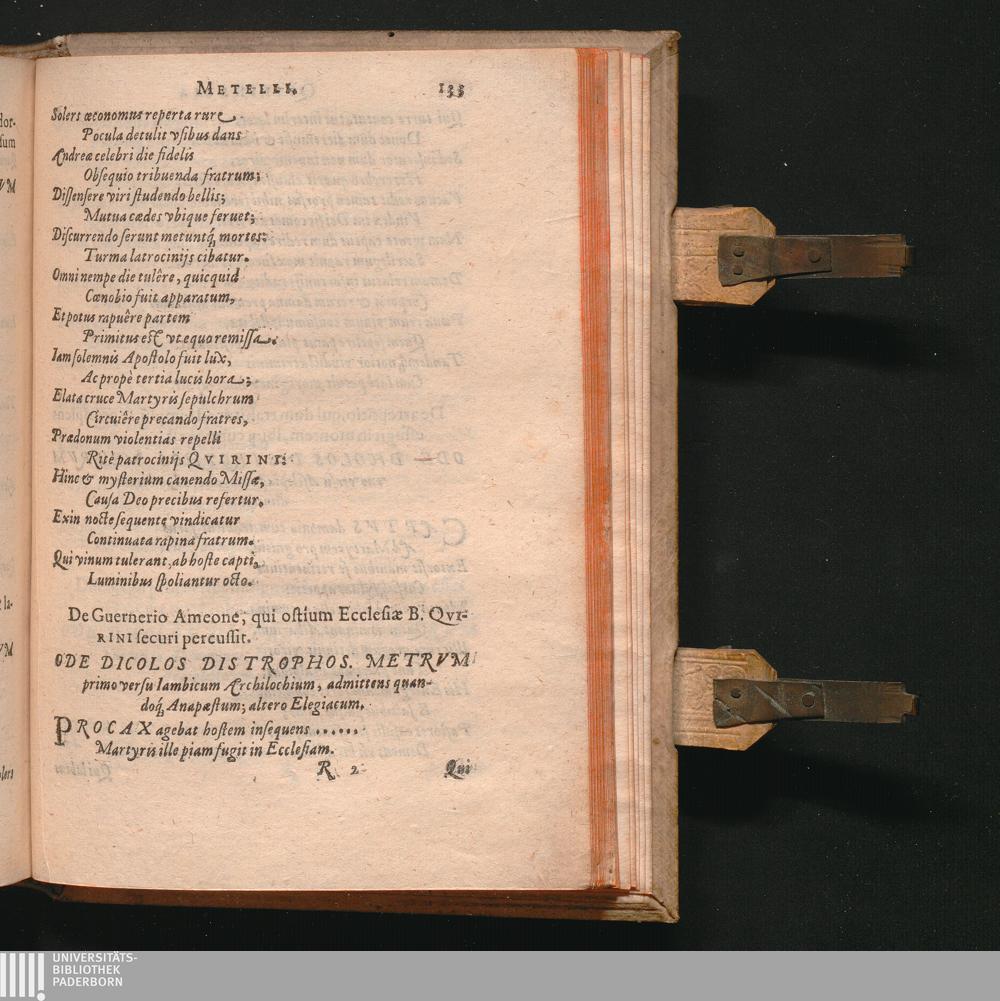 METELLI. 135
Solers œconomus reperta rure
Pocula detulit vsibus dans
Andreæ celebri die fidelis
Obsequio tribuenda fratrum;
Dissensere viri studendo bellis;
Mutua cædes vbique feruet;
Discurrendo ferunt metuntq́ mortes:
Turma latrocinijs cibatur.
Omni nempe die tulêre, quicquid
Cœnobio fuit apparatum,
Et potus rapuêre partem
Primitus est vt equo remissa.
Iam solemnis Apostolo fuit lux,
Ac propè tertia lucis hora;
Elata cruce Martyris sepulchrum
Circuiêre precando fratres,
Prædonum violentias repelli
Ritè patrocinijs QVIRINI:
Hinc & mysterium canendo Missæ,
Causa Deo precibus refertur.
Exin nocte sequente vindicatur
Continuata rapina fratrum.
Qui vinum tulerant, ab hoste capti,
Luminibus spoliantur octo.
De Guernerio Ameone, qui ostium Ecclesiæ B. QVI-
RINI securi percussit.
ODE DICOLOS DISTROPHOS. METRVM
primo versu Iambicum Archilochium, admittens quan-
doq́, Anapæstum; altero Elegiacum.
PROCAX agebat hostem insequens ......
Martyris ille piam fugit in Ecclesiam.
R 2 Qui
dor-
sum
VM
la-
VM
UNIVERSITÄTS-
BIBLIOTHEK
PADERBORN